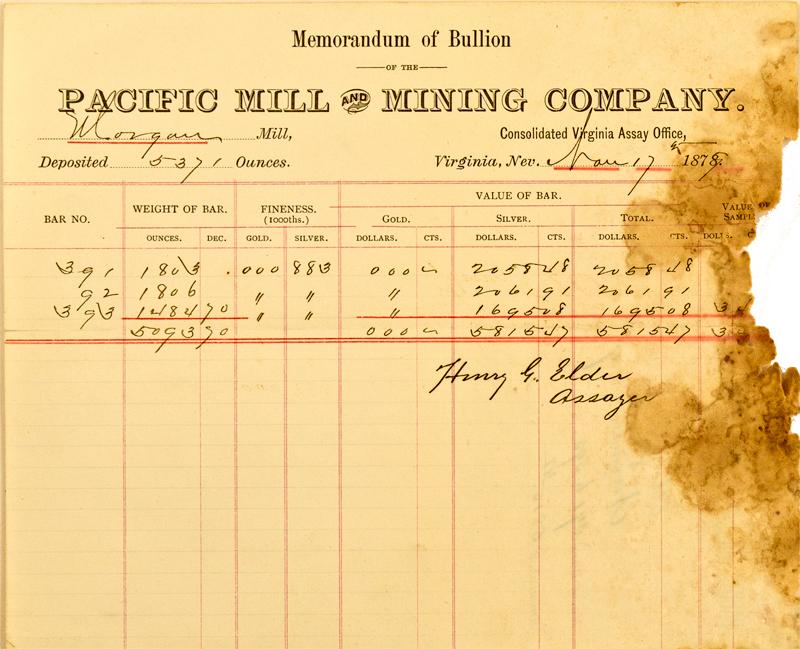 Memorandum of Bullion
OF THE
PACIFIC MILL AND MINING COMPANY.
Morgan Mill, Consolidated Virginia Assay Office,
Deposited 5371 Ounces. Virginia, Nev. Nov 17 1878
BAR NO. WEIGHT OF BAR. FINENESS. (1000ths.) VALUE OF BAR. VALUE OF
GOLD. SILVER. TOTAL.
OUNCES. DEC. GOLD. SILVER. DOLLARS. CTS. DOLLARS. CTS. DOLLARS. CTS. DOLLS.
391 1803 .000 883 000 2058 48 2058 48
92 1806 " " " 2061 91 2061 91
393 1484 70 " " " 1695 08 1695 08
5093 70 000 5815 47 5815 47
Henry G. Elder
Assayer